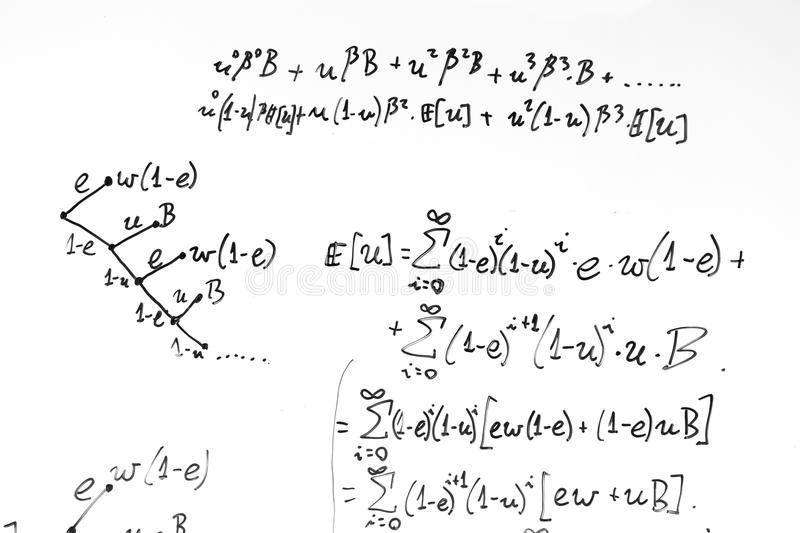 u⁰β⁰B + uβB + u²β²B + u³β³·B + ......
u⁰(1-u)β𝔼[u] + u(1-u)β²·𝔼[u] + u²(1-u)β³·𝔼[u]
e w(1-e)
u B
1-e
e w(1-e)
1-u
u B
1-e
1-u ......
𝔼[u] = ∑_{i=0}^{∞} (1-e)^i (1-u)^i · e · w(1-e) +
+ ∑_{i=0}^{∞} (1-e)^{i+1} (1-u)^i · u · B .
= ∑_{i=0}^{∞} (1-e)^i (1-u)^i [ew(1-e) + (1-e)uB]
= ∑_{i=0}^{∞} (1-e)^{i+1} (1-u)^i [ew + uB] .
e w(1-e)
u B
]
dreamstime